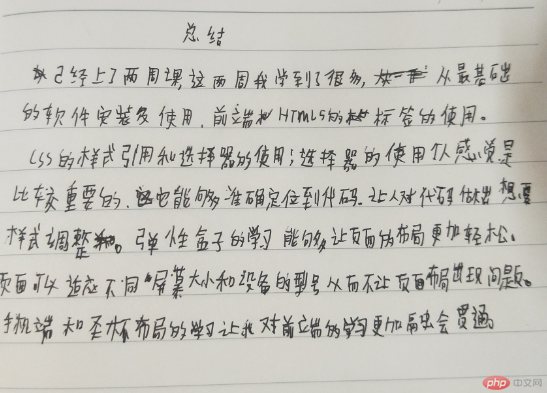 总结
已经上了两周课,这两周我学到了很多, 从最基础
的软件安装及使用,前端 HTML5的 标签的使用。
CSS的样式引用和选择器的使用;选择器的使用个人感觉是
比较重要的, 也能够准确定位到代码,让人对代码做出想要
样式调整。弹性盒子的学习能够让页面的布局更加轻松。
页面可以适应不同屏幕大小和设备的型号从而不让页面布局出现问题。
手机端和圣杯布局的学习让我对前端的学习更加融会贯通。
php 中文网